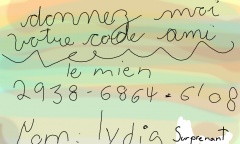 donnez moi
votre code ami
le mien
2938-6864-6108
Nom: lydia Surprenant